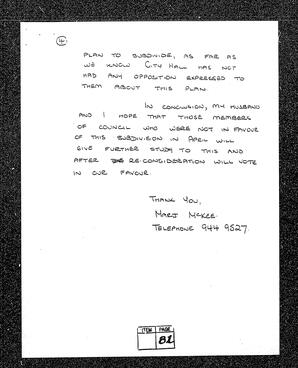 4
PLAN TO SUBDIVIDE, AS FAR AS
WE KNOW CITY HALL HAS NOT
HAD ANY OPPOSITION EXPRESSED TO
THEM ABOUT THIS PLAN.
IN CONCLUSION, MY HUSBAND
AND I HOPE THAT THOSE MEMBERS
OF COUNCIL WHO WERE NOT IN FAVOUR
OF THIS SUBDIVISION IN APRIL WILL
GIVE FURTHER STUDY TO THIS AND
AFTER RE-CONSIDERATION WILL VOTE
IN OUR FAVOUR.
THANK YOU,
MARJ MCKEE.
TELEPHONE 944 9527.
ITEM PAGE
82